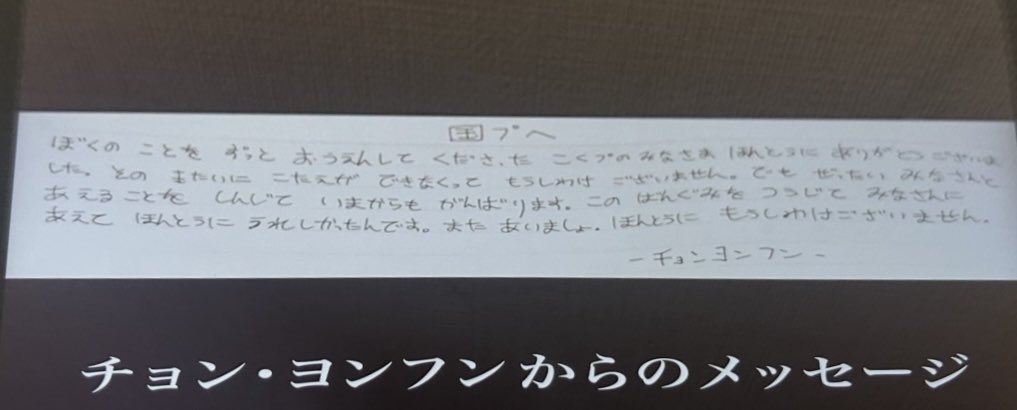 国プへ
ぼくの ことを ずっと おうえんして くださった こくプのみなさま ほんとうに ありがとうございま
した。その きたいに こたえが できなくって もうしわけ ございません。でも ぜったい みなさんと
あえることを しんじて いまからも がんばります。この ばんぐみを つうじて みなさんに
あえて ほんとうに うれしかったんです。また あいましょ。ほんとうに もうしわけございません。
- チョンヨンフン -
チョン・ヨンフンからのメッセージ